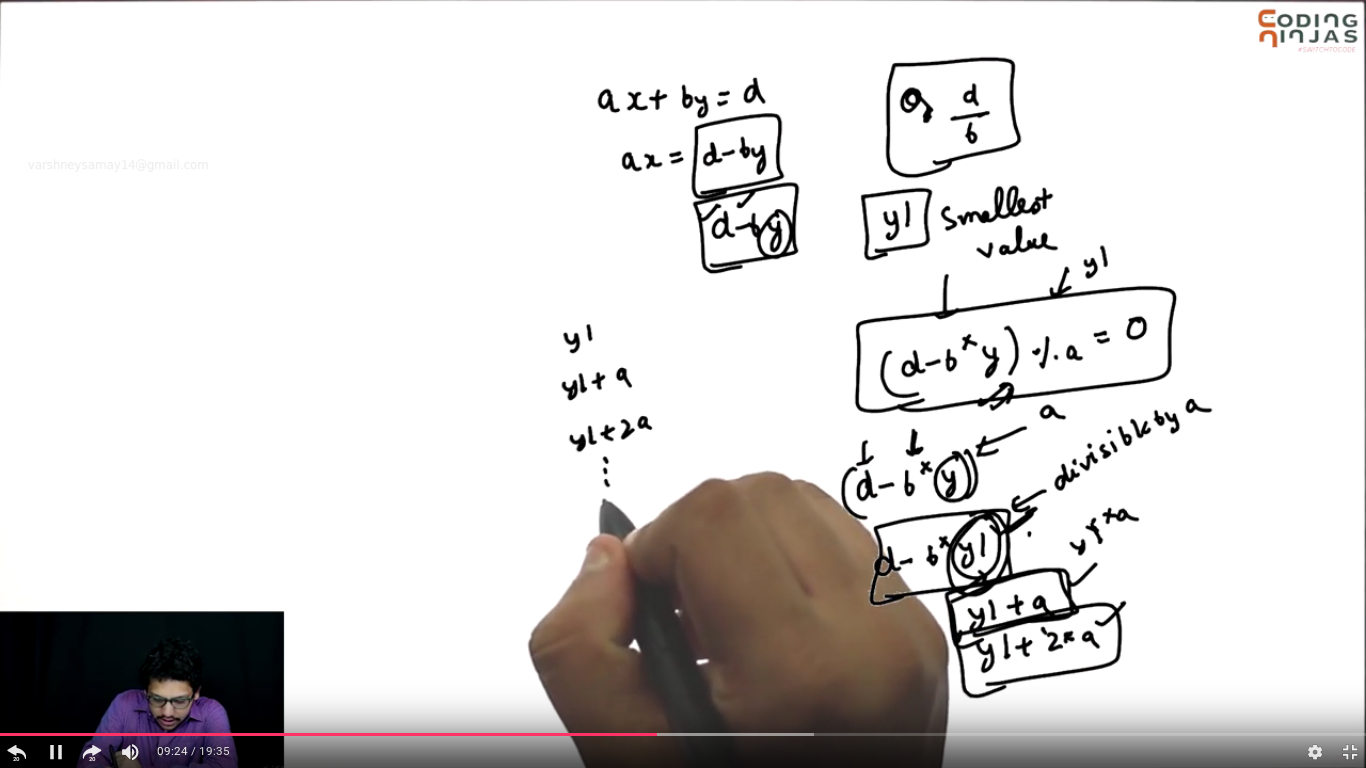 CODING
NINJAS
#SWITCHTOCODE
varshneysamay14@gmail.com
ax + by = d
ax = d-by
d-by
d
b
y1 smallest
value
y1
(d-b*y) % a = 0
y1
y1+a
y1+2a
a
(d-b*y)
divisible by a
d-b*y1
y1+a
y1+2*a
09:24 / 19:35
20
20